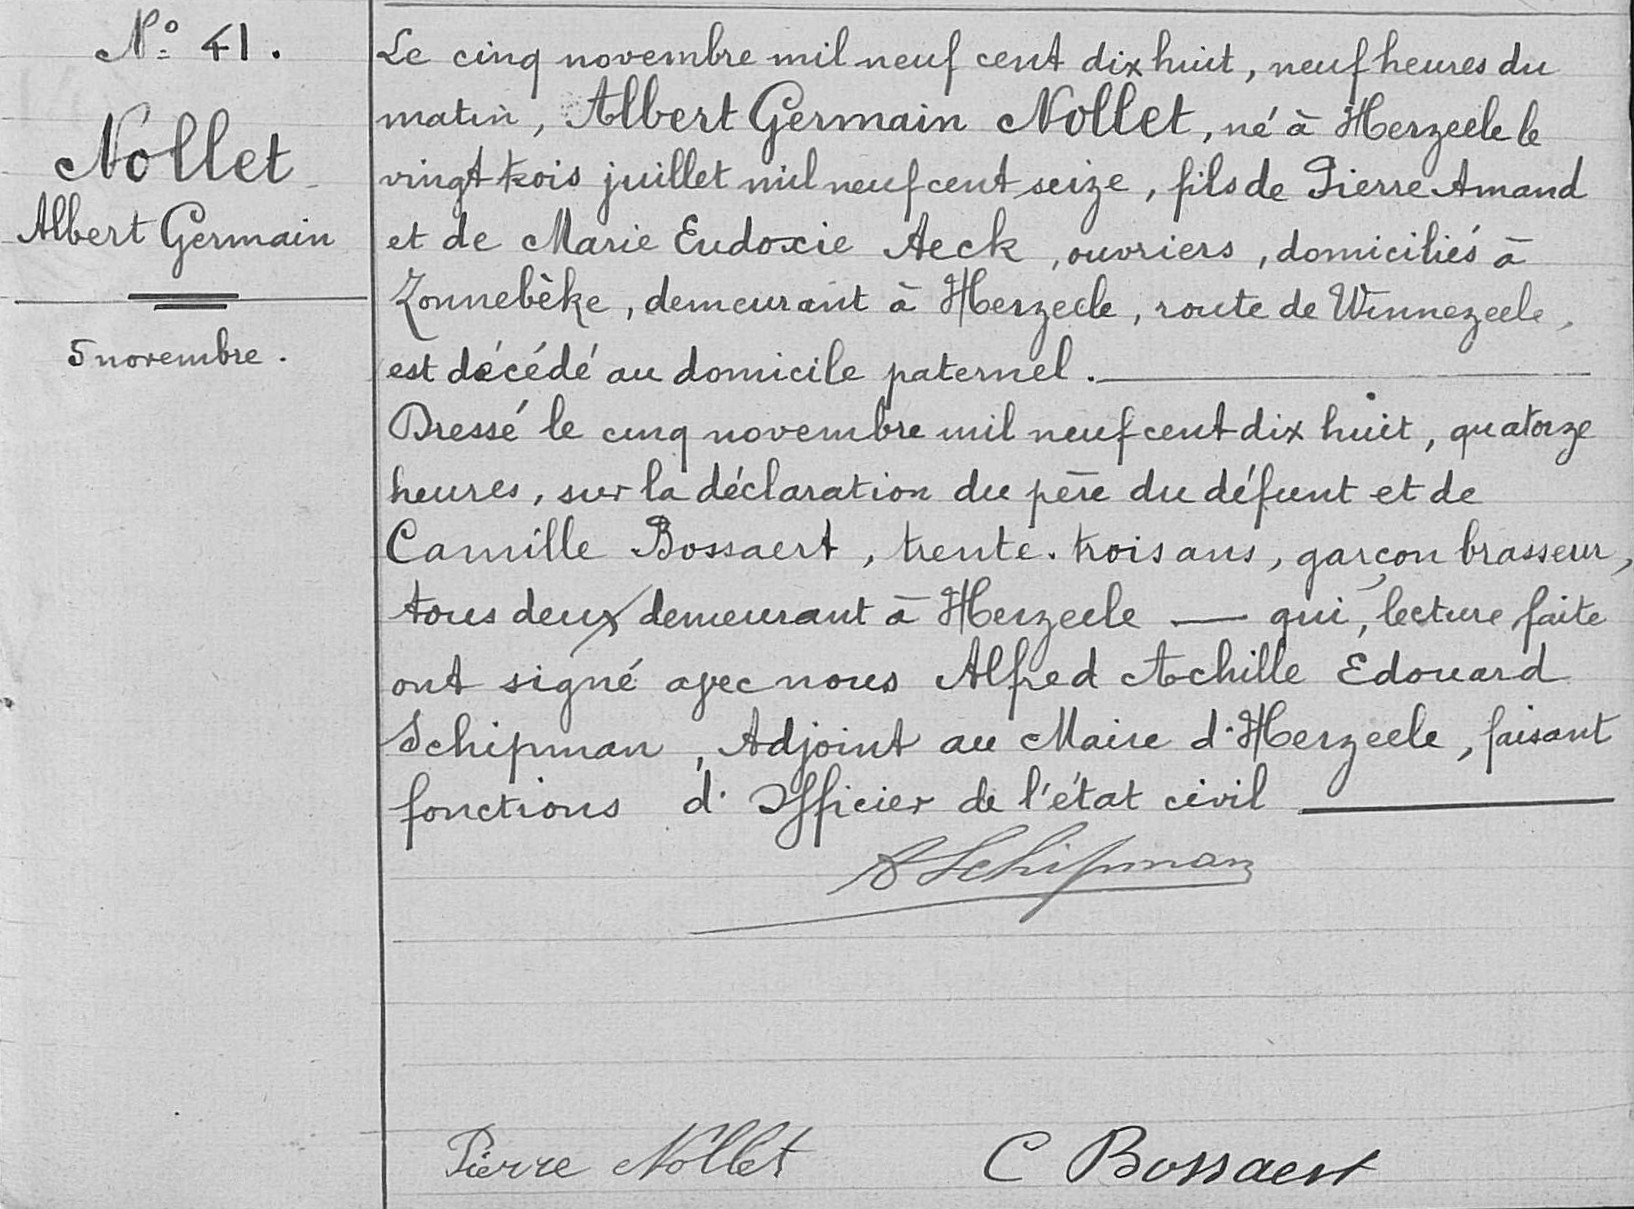 N° 41.
Nollet
Albert Germain
5 novembre.
Le cinq novembre mil neuf cent dix huit, neuf heures du
matin, Albert Germain Nollet, né à Herzeele le
vingt trois juillet mil neuf cent seize, fils de Pierre Amand
et de Marie Eudoxie Aeck, ouvriers, domiciliés à
Zonnebèke, demeurant à Herzeele, route de Winnezeele,
est décédé au domicile paternel.
Dressé le cinq novembre mil neuf cent dix huit, quatorze
heures, sur la déclaration du père du défunt et de
Camille Bossaert, trente-trois ans, garçon brasseur,
tous deux demeurant à Herzeele — qui, lecture faite
ont signé avec nous Alfred Achille Edouard
Schipman, Adjoint au Maire d'Herzeele, faisant
fonctions d'Officier de l'état civil
A Schipman
Pierre Nollet C Bossaert